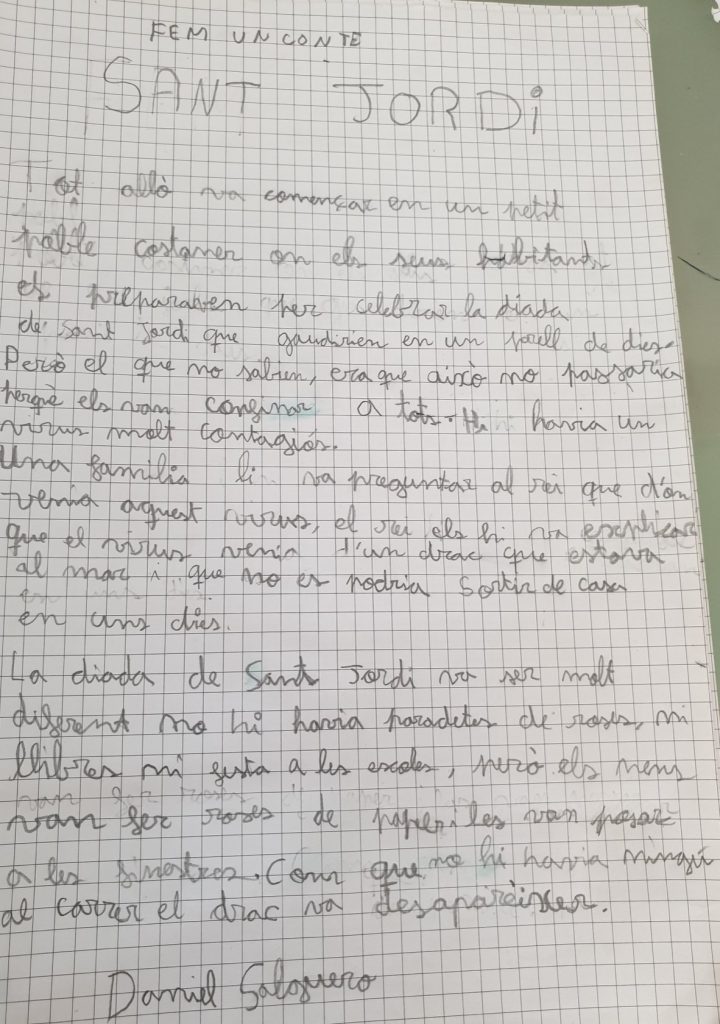 FEM UN CONTE
SANT JORDI
Tot allò va començar en un petit
poble costaner on els seus habitants
es preparaven per celebrar la diada
de Sant Jordi que gaudirien en un parell de dies.
Però el que no sabien, era que això no passaria
perquè els van confinar a tots. Hi havia un
virus molt contagiós.
Una família li va preguntar al rei que d'on
venia aquest virus, el rei els hi va explicar
que el virus venia d'un drac que estava
al mar i que no es podria sortir de casa
en uns dies.
La diada de Sant Jordi va ser molt
diferent no hi havia paradetes de roses, ni
llibres ni festa a les escoles, però els nens
van fer roses de paper i les van posar
a les finestres. Com que no hi havia ningú
al carrer el drac va desaparèixer.
Daniel Salguero